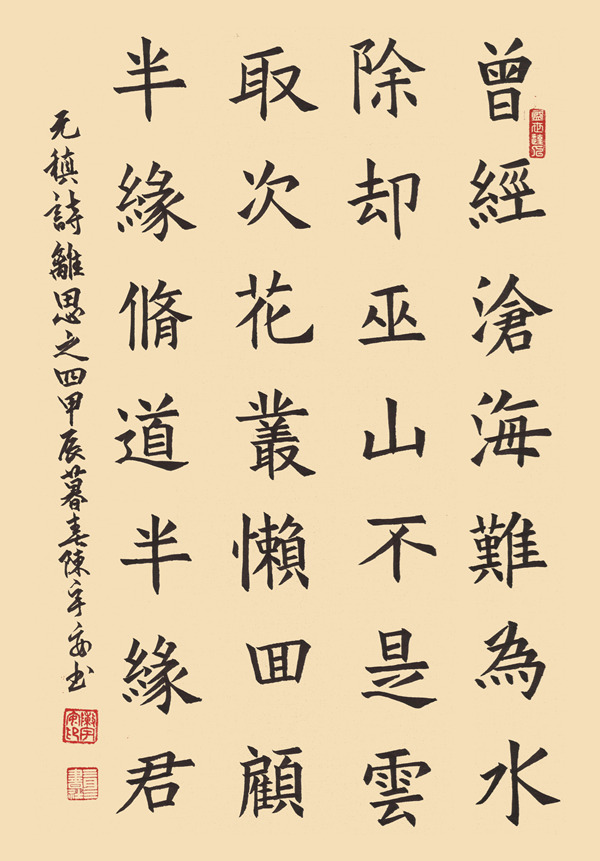 曾經滄海難為水
除却巫山不是雲
取次花叢懶囬顧
半緣脩道半緣君
元稹詩離思之四甲辰暮春陳宇安书